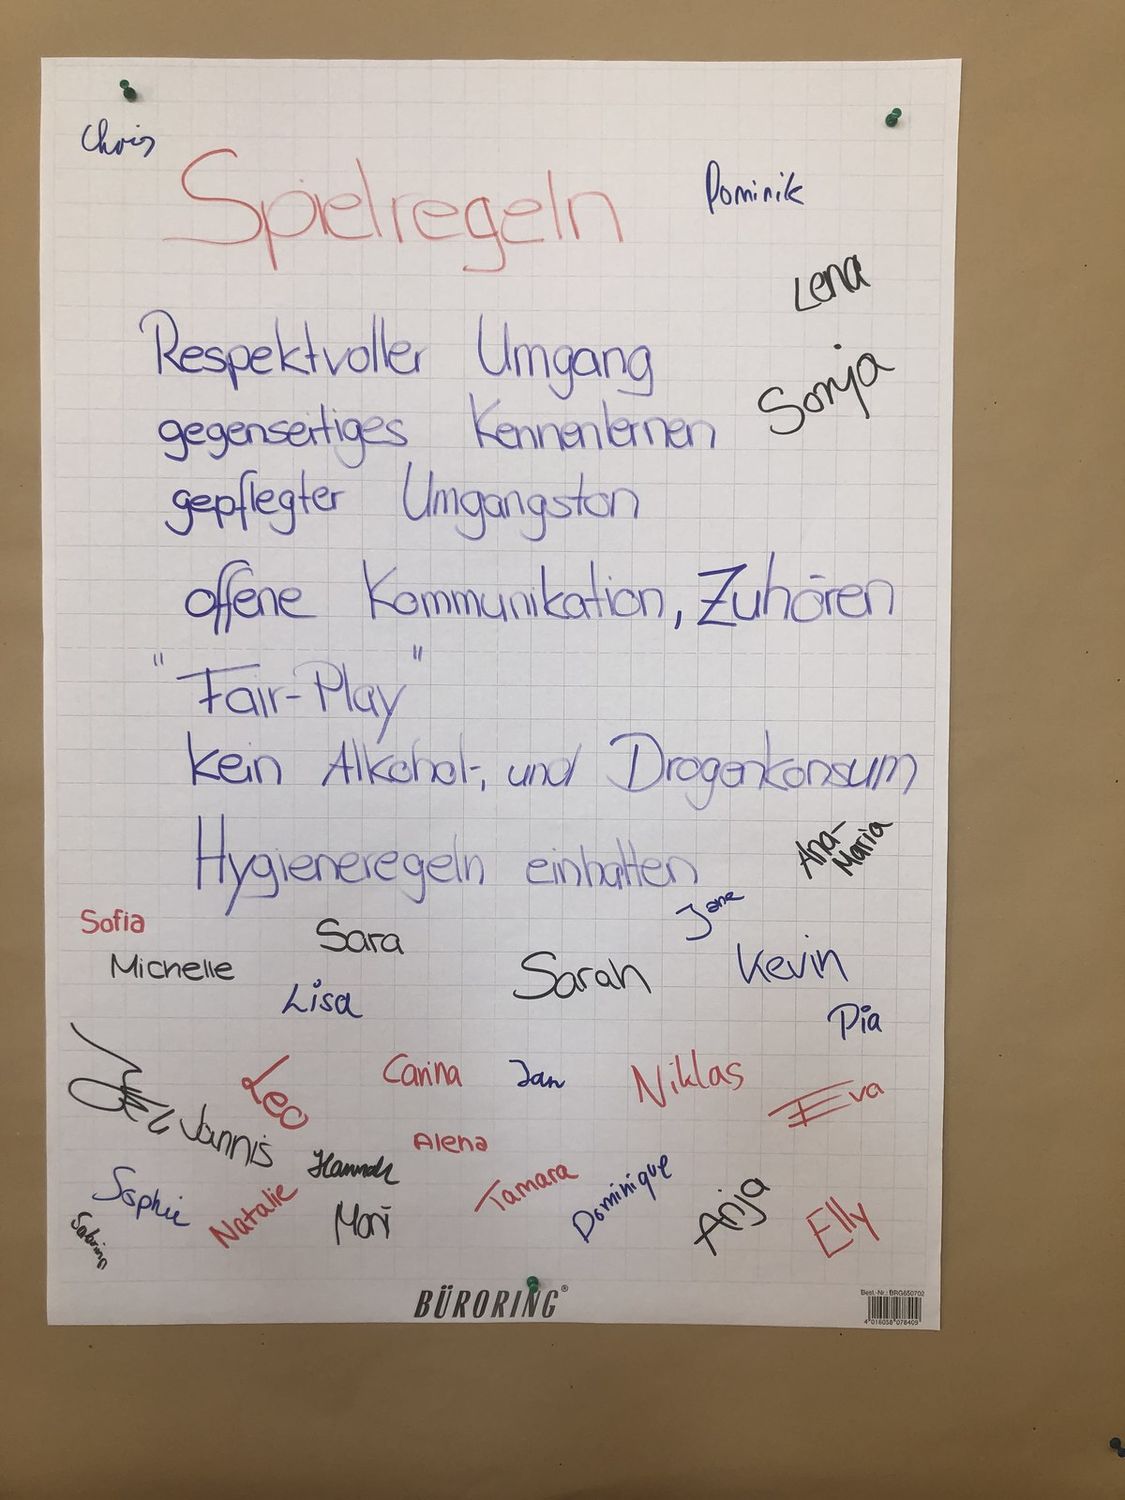 Chris
Spielregeln
Dominik
Lena
Sonja
Respektvoller Umgang
gegenseitiges Kennenlernen
gepflegter Umgangston
offene Kommunikation, Zuhören
"Fair-Play"
kein Alkohol-, und Drogenkonsum
Hygieneregeln einhalten
Ana-
Maria
Jane
Sofia
Sara
Michelle
Sarah
Kevin
Lisa
Pia
Leo
Carina
Jan
Niklas
Eva
Jannis
Alena
Hannah
Sophie
Natalie
Tamara
Dominique
Anja
Elly
BÜRORING®
Best.-Nr.: BRG650702
4 016058 078409